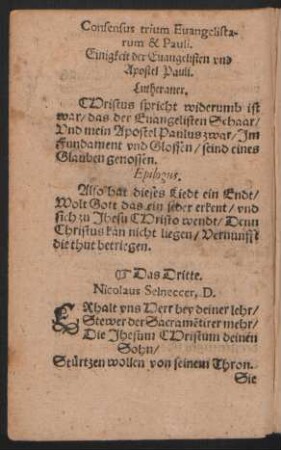 Consensus trium Euangelista-
rum & Pauli.
Einigkeit der Euangelisten vnd
Apostel Pauli.
Lutheraner.
CHristus spricht widerumb ist
war/ das der Euangelisten Schaar/
Vnd mein Apostel Paulus zwar/ Im
Fundament vnd Glossen/ seind eines
Glauben genossen.
Epilogus.
Also hat dieses Liedt ein Endt/
Wolt Gott das ein jeder erkent/ vnd
sich zu Jhesu CHristo wendt/ Denn
Christus kan nicht liegen/ Vernunfft
die thut betriegen.
Das Dritte.
Nicolaus Selneccer, D.
ERhalt vns Herr bey deiner lehr/
Stewer der Sacramẽtirer mehr/
Die Jhesum CHristum deinen
Sohn/
Stürtzen wollen von seinem Thron.
Sie